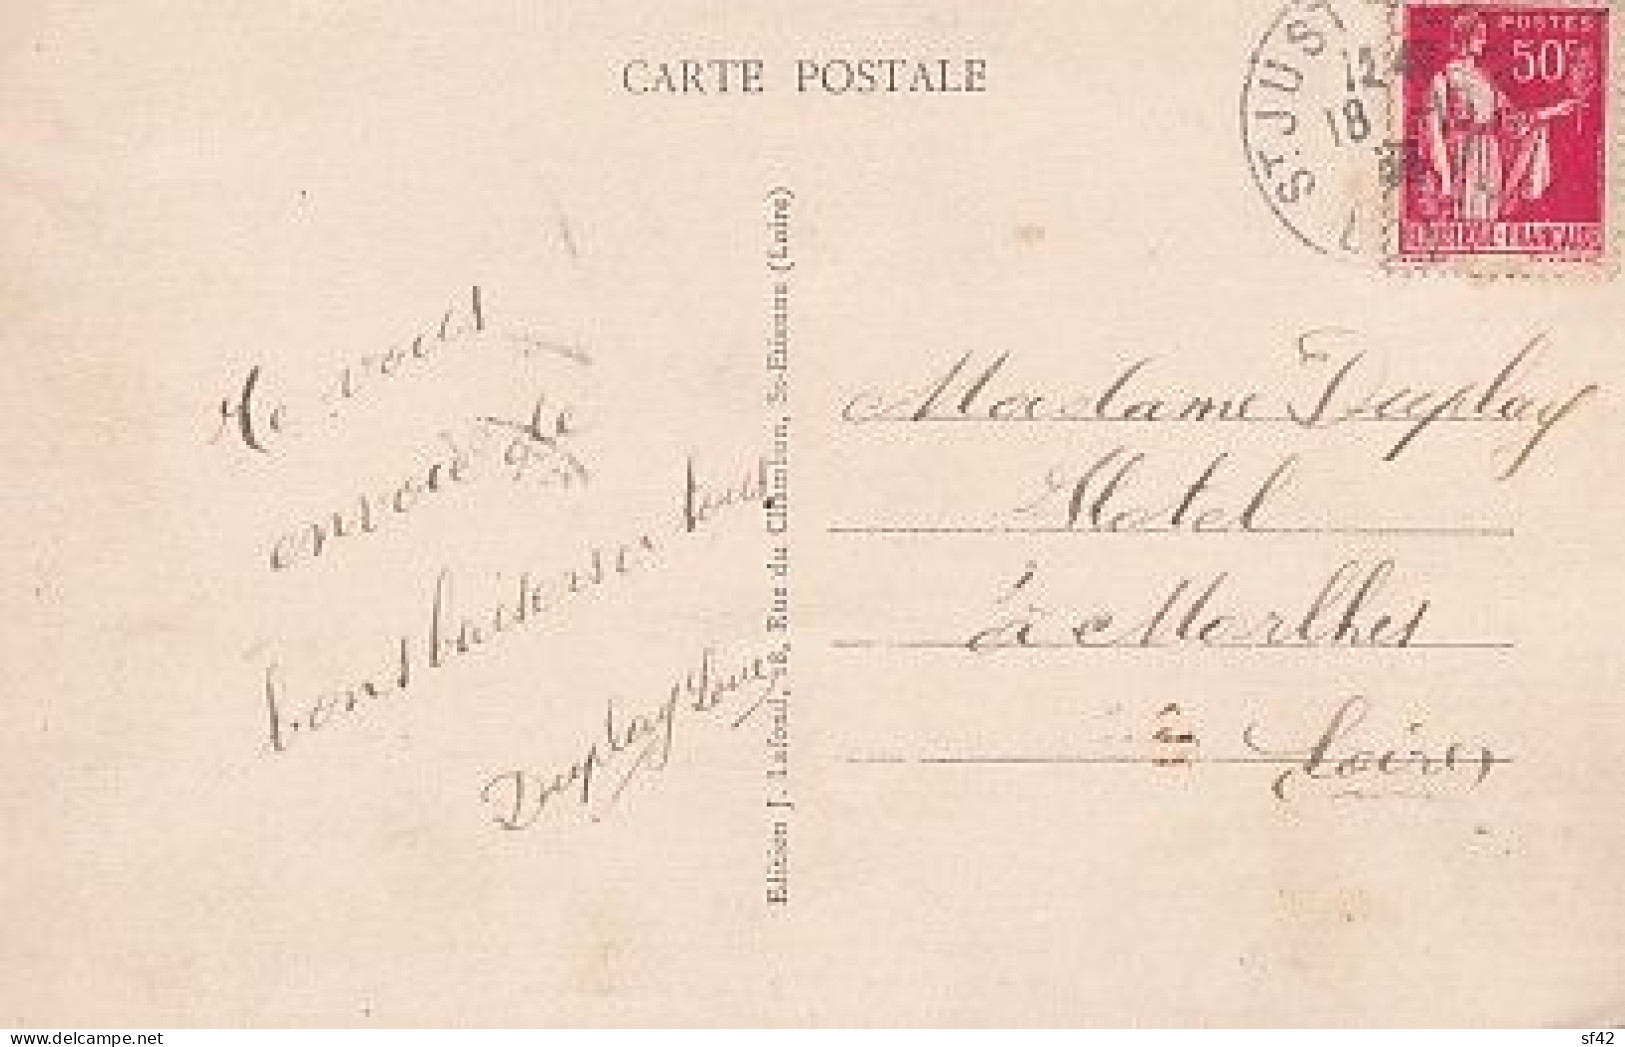 CARTE POSTALE
ST. JUST
12
18
POSTES
50c
RÉPUBLIQUE FRANÇAISE
Je vous
envoie de
bons baisers a tous
Duplay Louise
Edition J. Lafond, 18, Rue du Chambon, St-Etienne (Loire)
Madame Duplay
Hotel
à Marlhes
Loire
delcampe.net
sf42